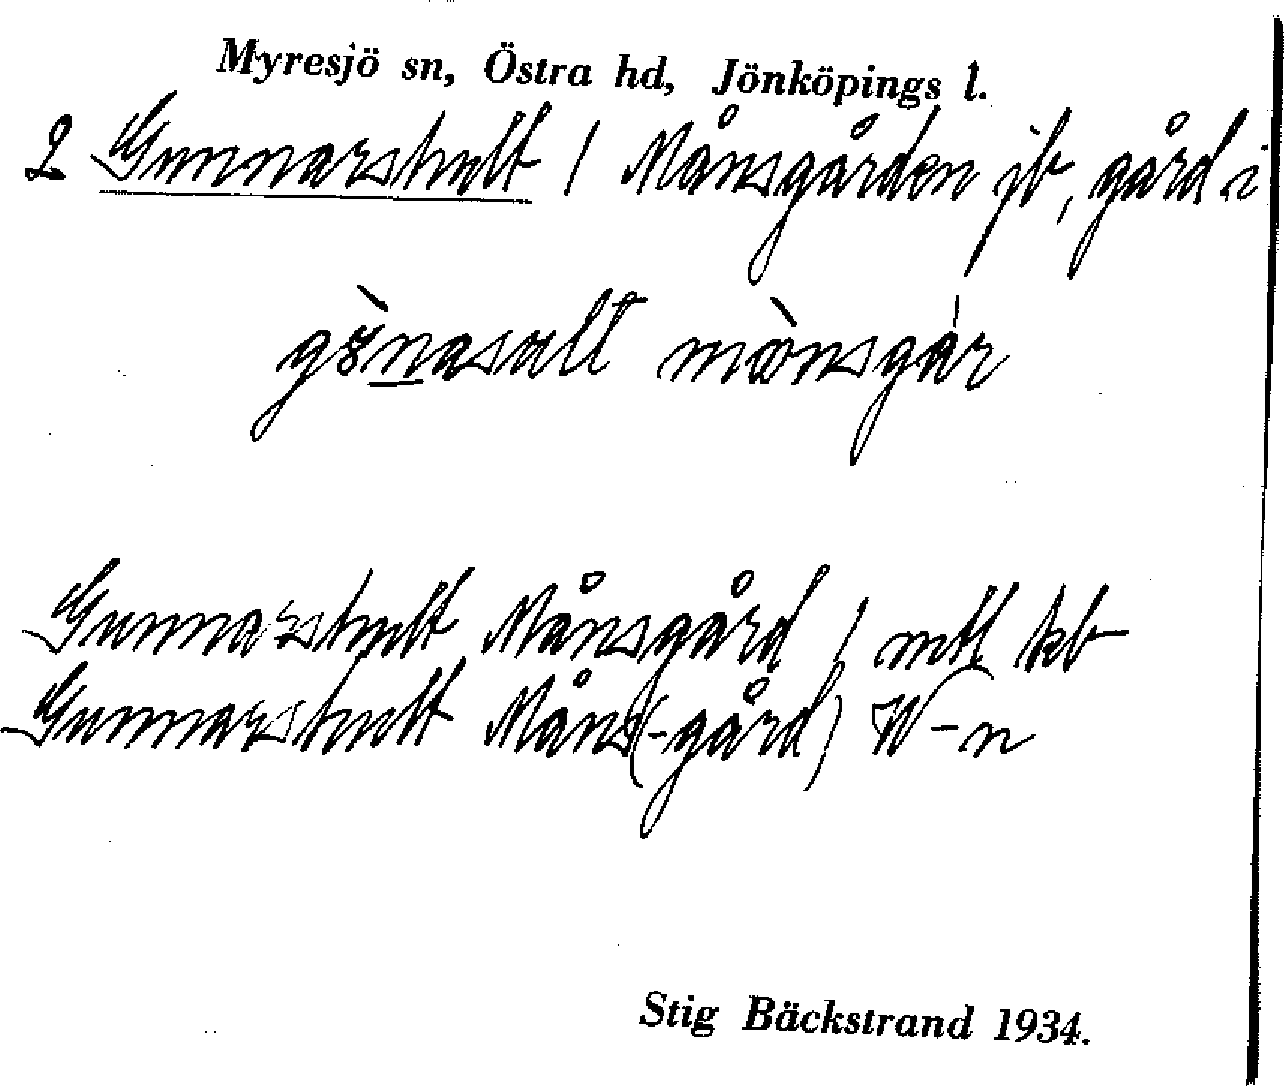 Myresjö sn, Östra hd, Jönköpings l.
2 Gunnarshult 1 Månsgården jb, gård i
Gunnarshult Månsgård 1 mtl kb
Gunnarshult Måns(-gård) W-n
Stig Bäckstrand 1934.